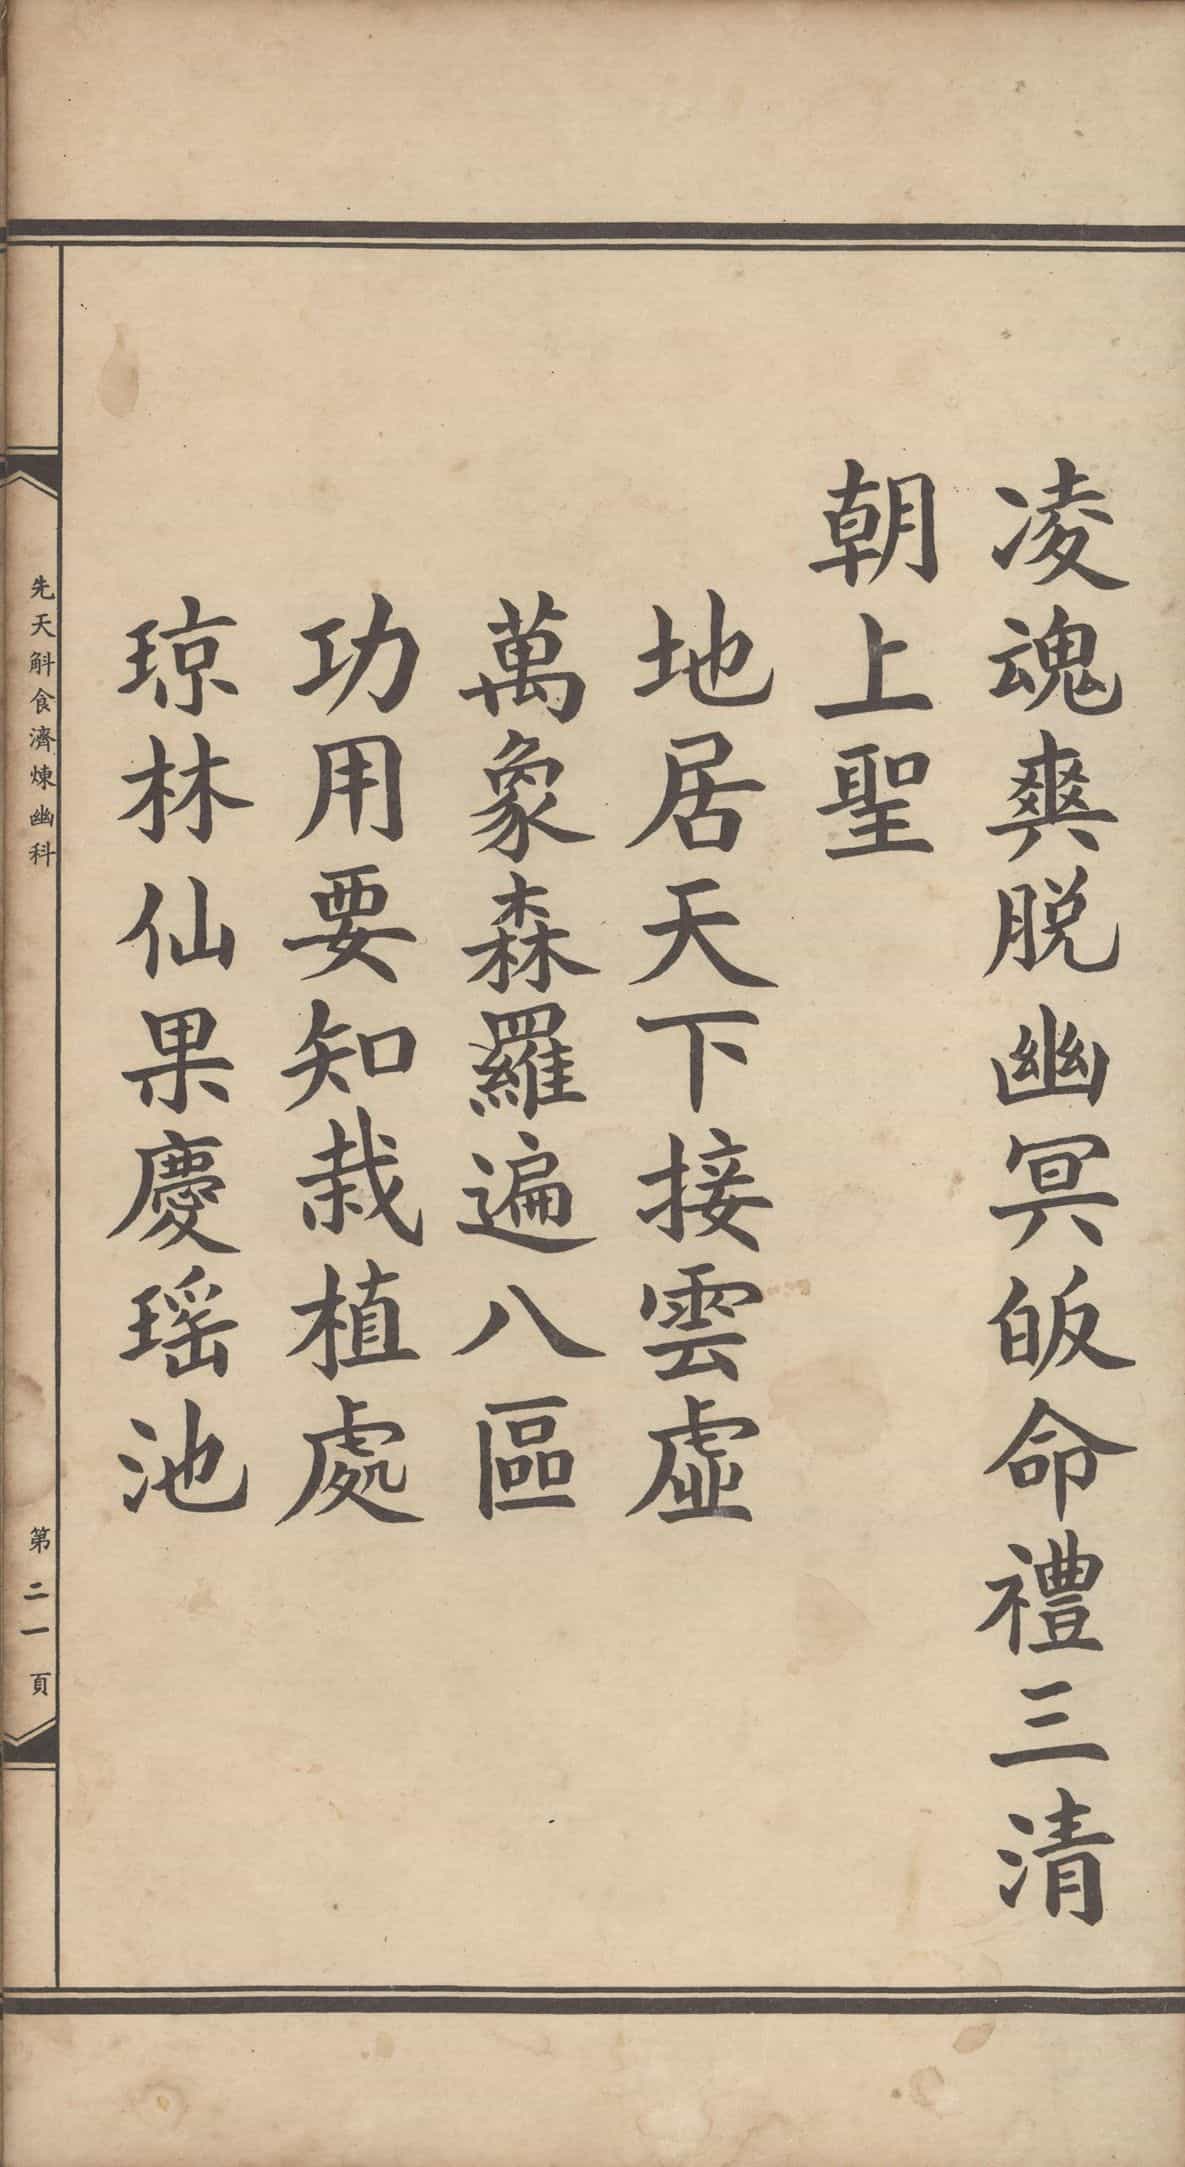 凌魂爽脫幽冥皈命禮三清
朝上聖
地居天下接雲虛
萬象森羅遍八區
功用要知栽植處
琼林仙果慶瑶池
先天斛食濟煉幽科
第二一頁